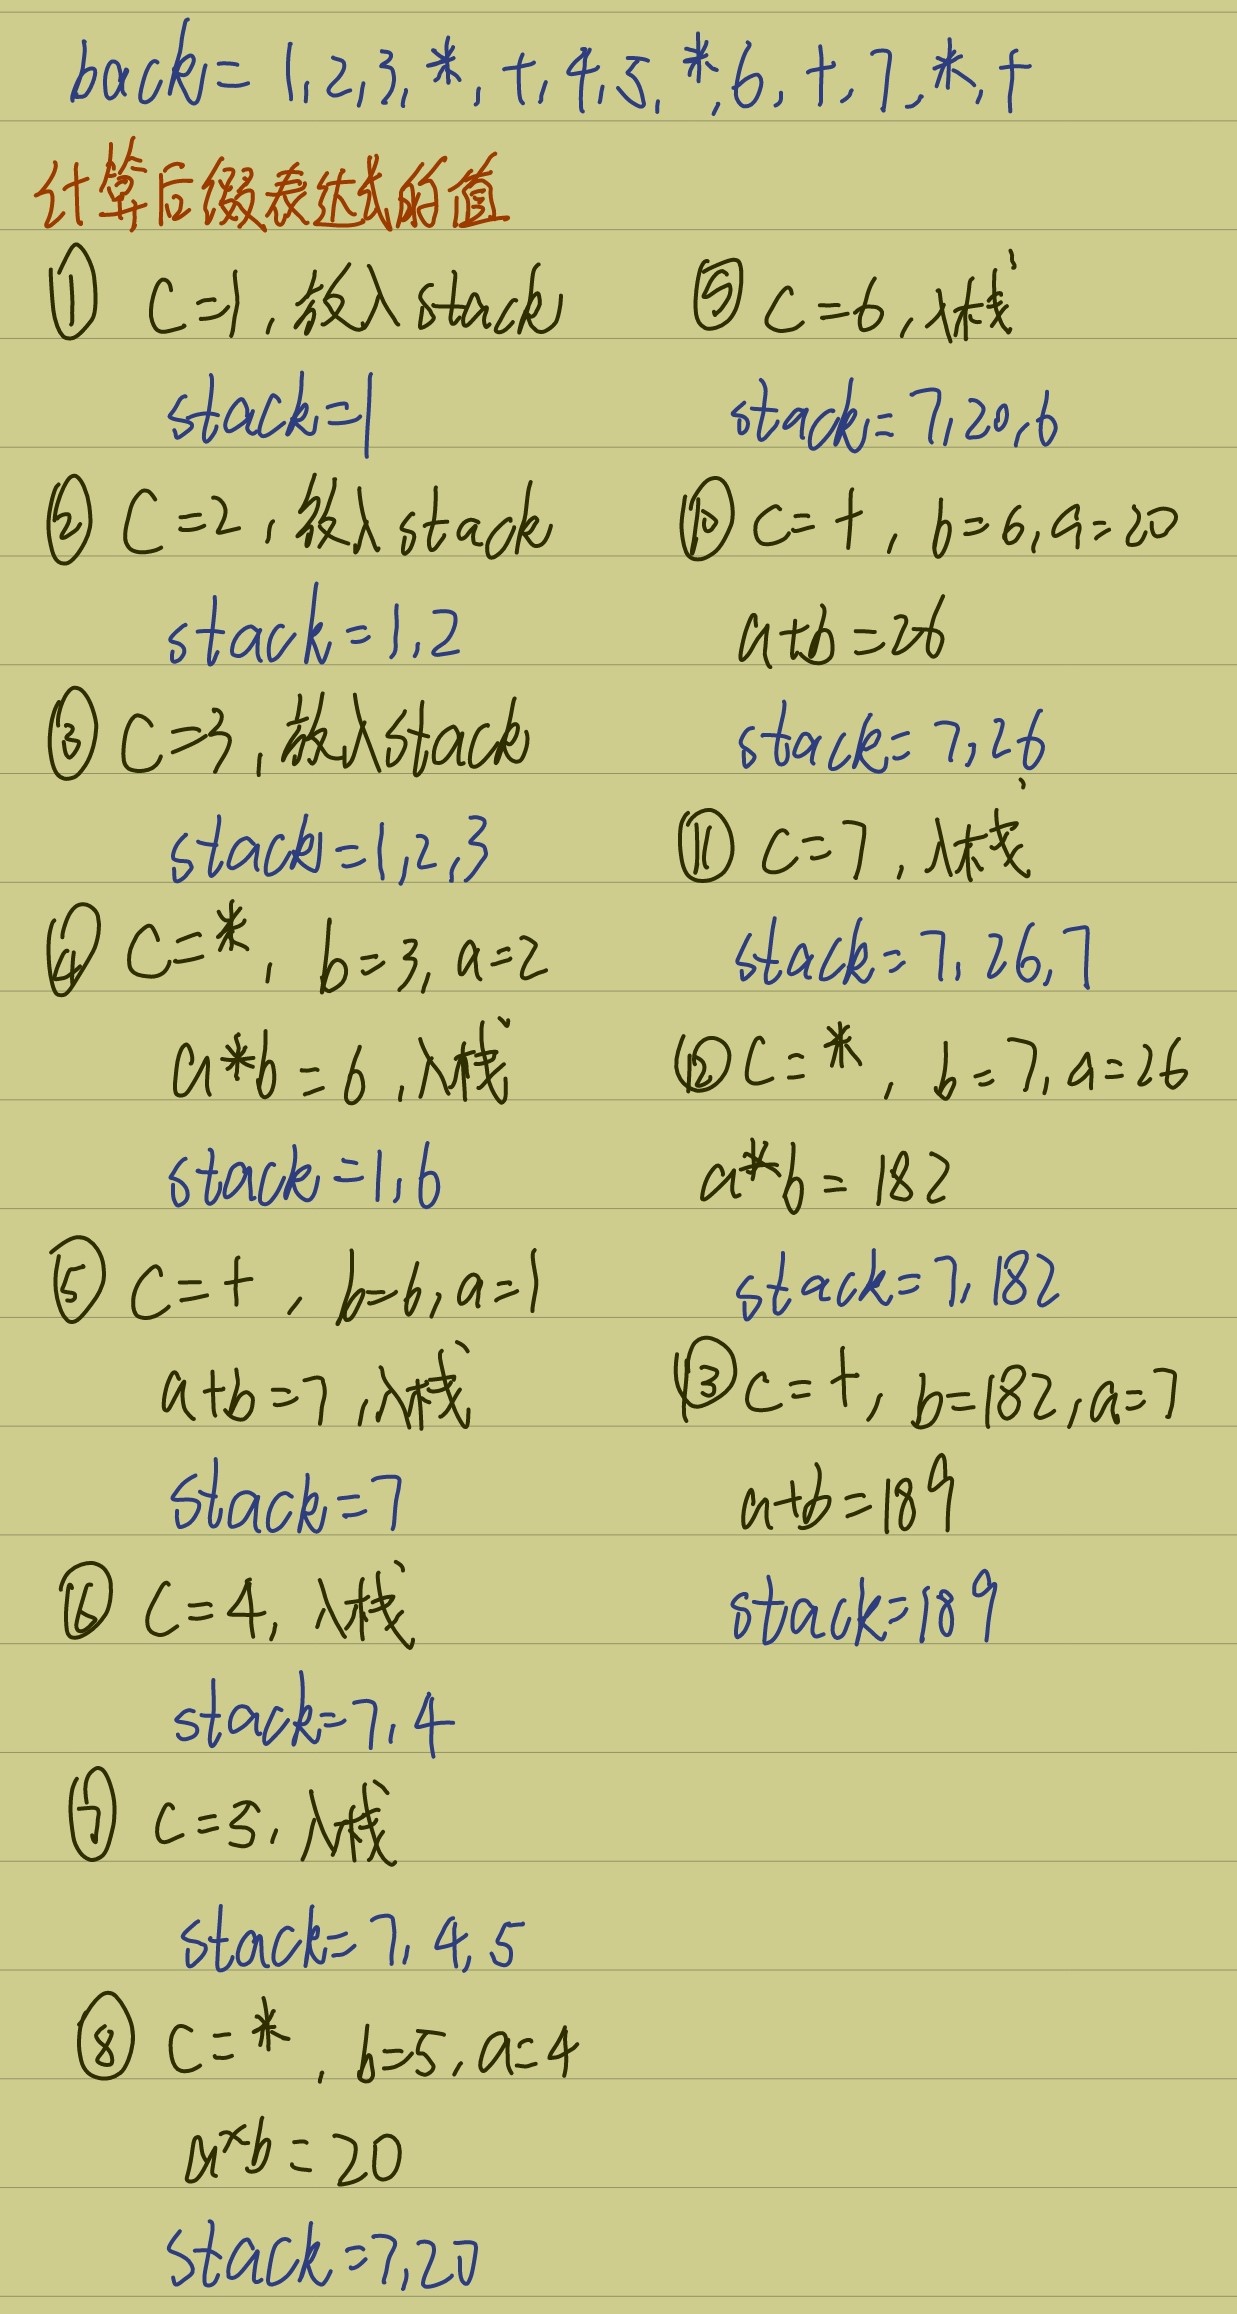 back = 1,2,3,*,+,4,5,*,6,+,7,*,+
计算后缀表达式的值
① C=1,放入stack
stack=1
② C=2,放入stack
stack=1,2
③ C=3,放入stack
stack=1,2,3
④ C=*, b=3,a=2
a*b=6,入栈
stack=1,6
⑤ C=+, b=6,a=1
a+b=7,入栈
stack=7
⑥ C=4,入栈
stack=7,4
⑦ C=5,入栈
stack=7,4,5
⑧ C=*, b=5,a=4
a×b=20
stack=7,20
⑤ C=6,入栈
stack=7,20,6
⑩ C=+, b=6,a=20
a+b=26
stack=7,26
⑪ C=7,入栈
stack=7,26,7
⑫ C=*, b=7,a=26
a*b=182
stack=7,182
⑬ C=+, b=182,a=7
a+b=189
stack=189